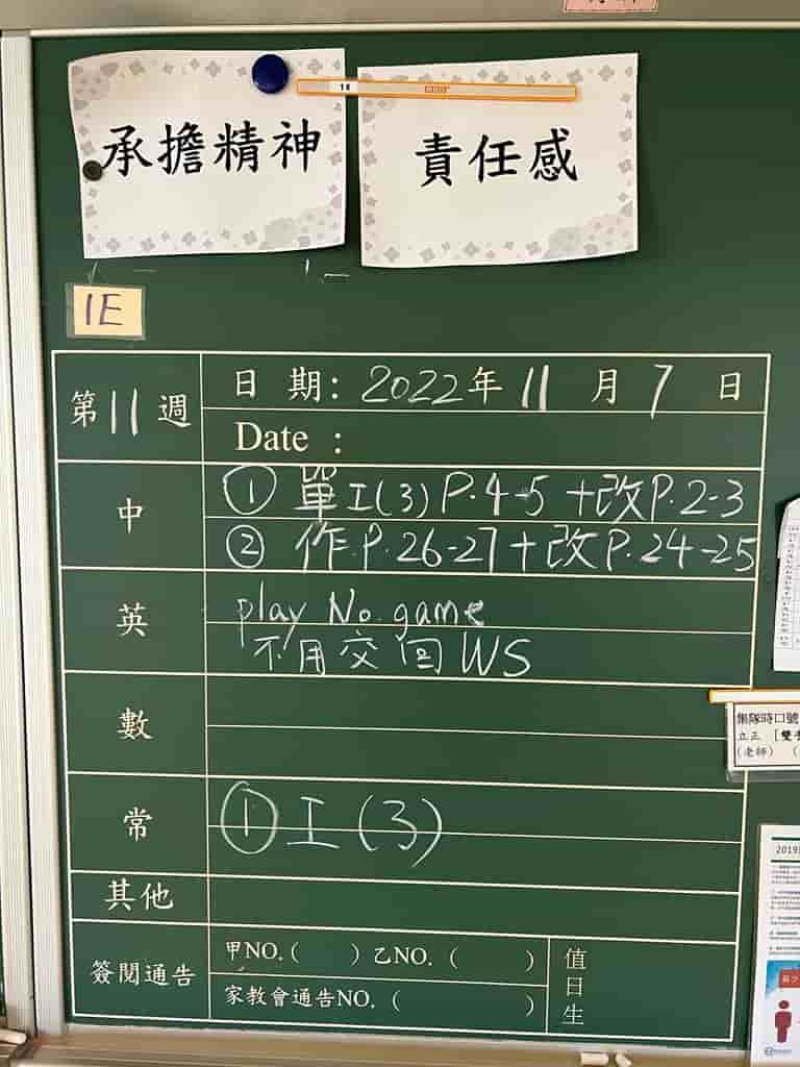 承擔精神
責任感
1E
第11週
日期：2022年11月7日
Date：
中
① 單工(3) P.4-5 +改P.2-3
② 作.P.26-27+改P.24-25
英
play No. game
不用交回WS
數
常
①工(3)
其他
簽閱通告
甲NO.( ) 乙NO.( )
家教會通告NO.( )
值日生
集隊時口號
立正
(老師)
2019